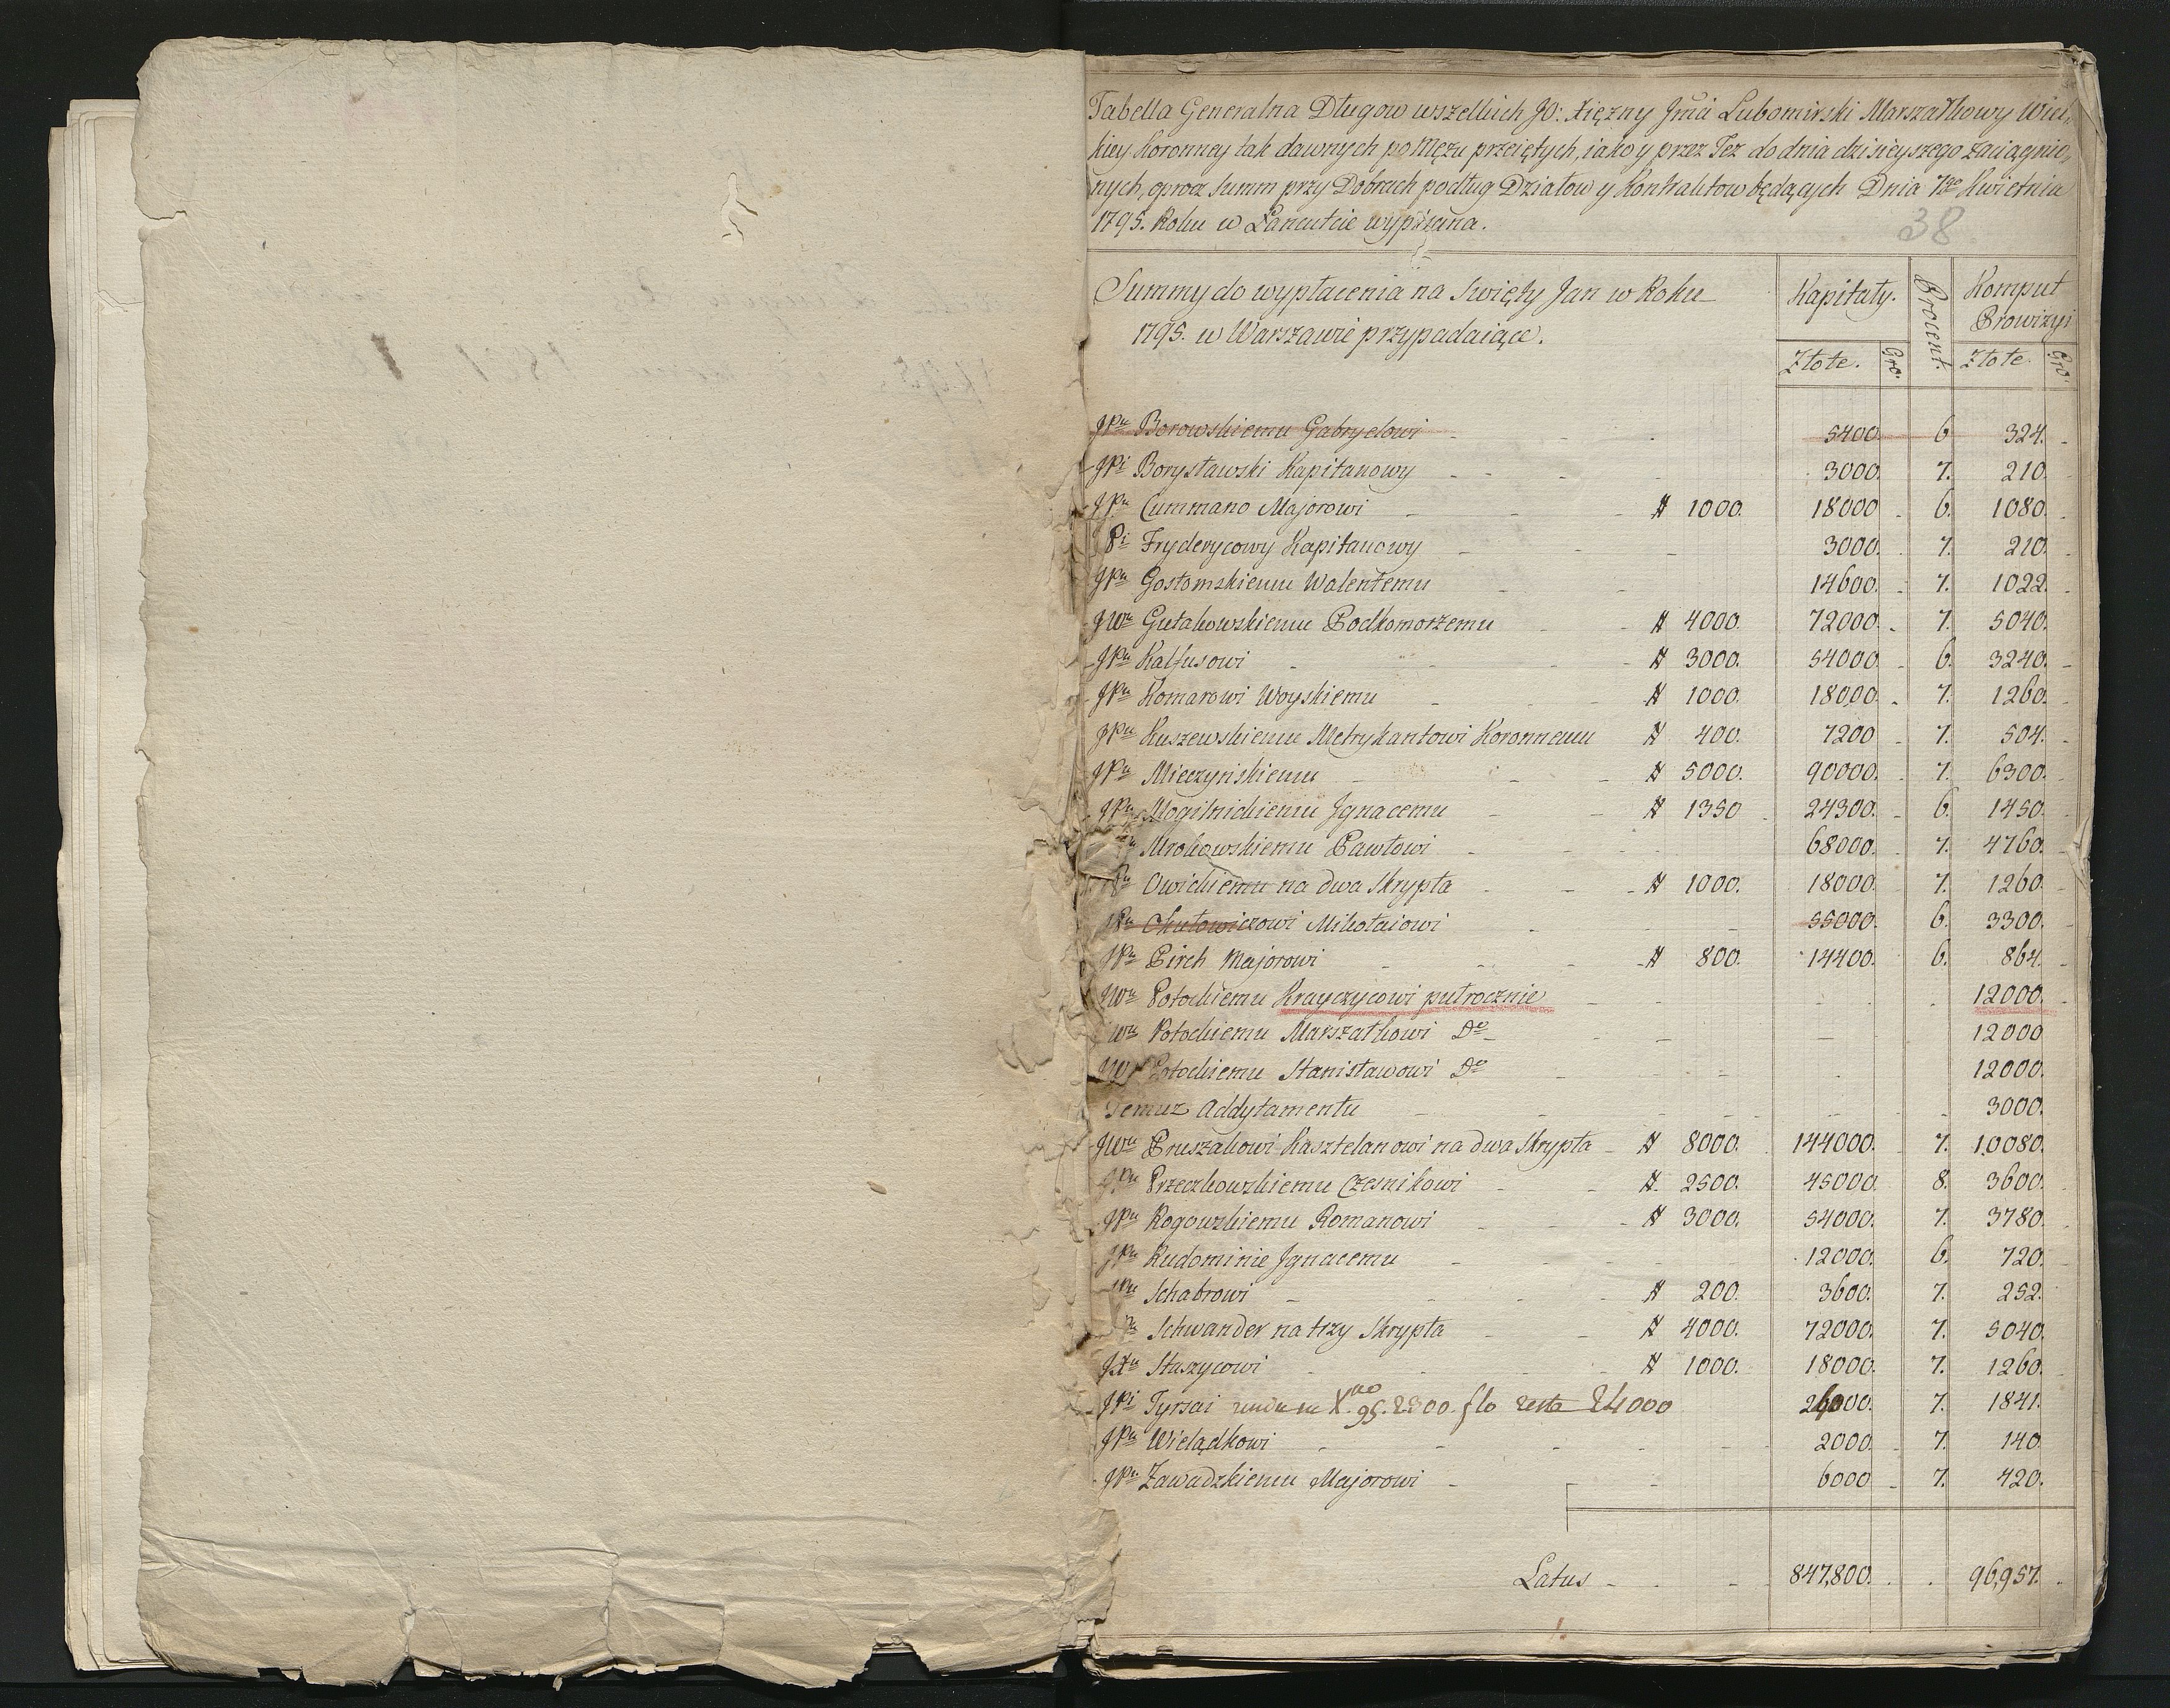 Tabella Generalna Długow wszelkich JO: Xiężny Jmći Lubomirski Marszałkowy Wiel,,
kiey Koronney tak dawnych po Mężu przeiętych, iako y przez Też do dnia dzisieyszego zaciągnio,,
nych, oprocz Summ przy Dobrach podług Działow y Kontraktow będących Dnia 7go Kwietnia
1795. Roku w Łancutcie wypisana.
38
Summy do wypłacenia na Swięty Jan w Roku
1795. w Warszawie przypadaiące.
Kapitały. Procent. Komput Prowizyi
Złote. Gro. Złote Gro.
JPu Borowskiemu Gabryelowi - - - 5400. 6 324. -
JPi Borysławski Kapitanowy - - - 3000. 7. 210. -
JPu Cummano Majorowi - - - # 1000. 18000 - 6. 1080. -
JPi Fryderycowy Kapitanowy - - - 3000. 7. 210. -
JPu Gostomskiemu Walentemu - - 14600. - 7. 1022. -
JWu Gutakowskiemu Podkomorzemu - - # 4000. 72000. - 7. 5040.
JPu Kalfusowi - - - # 3000. 54000. - 6. 3240. -
JPu Komarowi Woyskiemu - - - # 1000. 18000. - 7. 1260. -
JPu Kuszewskiemu Metrykantowi Koronnemu # 400. 7200 - 7. 504. -
JPu Mieczyńskiemu - - - # 5000. 90000. - 7. 6300. -
JPu Mogilnickiemu Jgnacemu - - # 1350 24300. - 6. 1450. -
Mrokowskiemu Pawłowi - - - 68000. 7. 4760. -
JPu Owickiemu na dwa Skrypta - - - # 1000. 18000. 7. 1260. -
JPu Okułowiczowi Mikołaiowi - - - 55000. 6. 3300. -
JPu Pirch Majorowi - - - # 800. 14400. 6. 864. -
JWu Potockiemu Krayczycowi pułrocznie - - - 12000. -
JWu Potockiemu Marszałkowi Do - - - 12000
JWu Potockiemu Stanisławowi Do - - - 12000.
Temuz Addytamentu - - - 3000.
JWu Pruszakowi Kasztelanowi na dwa Skrypta - # 8000. 144000. 7. 10080.
JPu Przeczkowskiemu Czesnikowi - - # 2500. 45000. 8. 3600.
JPu Rogowskiemu Romanowi - - - # 3000. 54000. 7. 3780.
JPu Rudominie Jgnacemu - - - 12000. 6. 720. -
JPu Schabrowi - - - # 200. 3600. 7. 252. -
Schwander na trzy Skrypta - - # 4000. 72000. 7. 5040.
JXu Staszycowi - - - # 1000. 18000. 7. 1260.
JPi Tyrsai X. 95. 2300. flo resta 24000 26000. 7. 1841.
JPu Wielądkowi - - - 2000. - 7. 140
JPu Zawadzkiemu Majorowi - - 6000 - 7. 420.
Latus - - - 847,800. - - 96,957. -